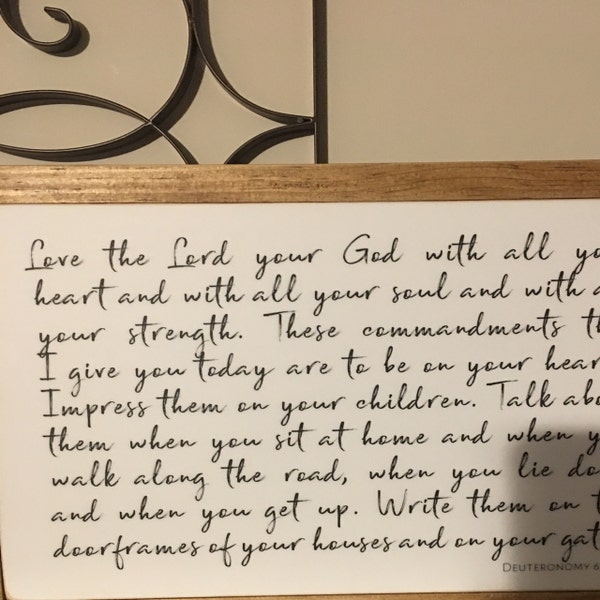 Love the Lord your God with all yo
heart and with all your soul and with a
your strength. These commandments th
I give you today are to be on your hear
Impress them on your children. Talk abo
them when you sit at home and when y
walk along the road, when you lie do
and when you get up. Write them on t
doorframes of your houses and on your gat
DEUTERONOMY 6